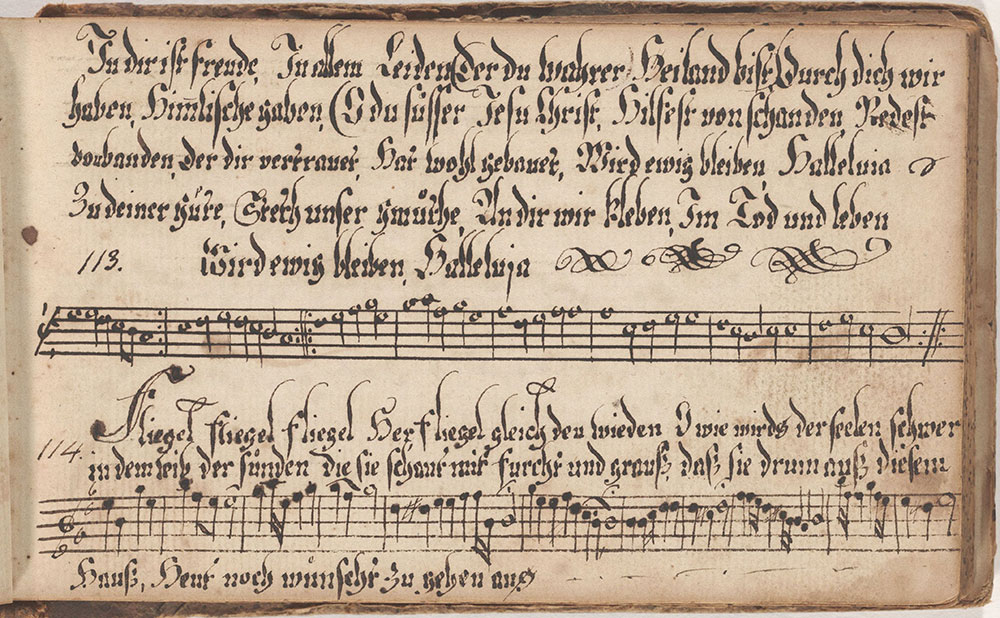 In dir ist freude, In allem Leiden, (Der du wahrer Heiland bist, (durch dich wir
haben, Himlische gaben, (O du süsser Jesu Christ, Hilfest von schanden Redest
von banden, der dir vertrauet, Hat wohl gebauet, Wird ewig bleiben, Halleluia
Zu deiner güte, Steth unser gmüthe, An dir wir kleben, Im Tod und leben
113. Wird ewig bleiben, Halleluja
Fliegel fliegel fliegel Her fliegel gleich den wieden O wie wirds der seelen schwer
114. in dem leib der sünden die sie schaut mit furcht und grauß, daß sie drum auß diesem
Hauß, Heut noch wünscht zu gehen auß